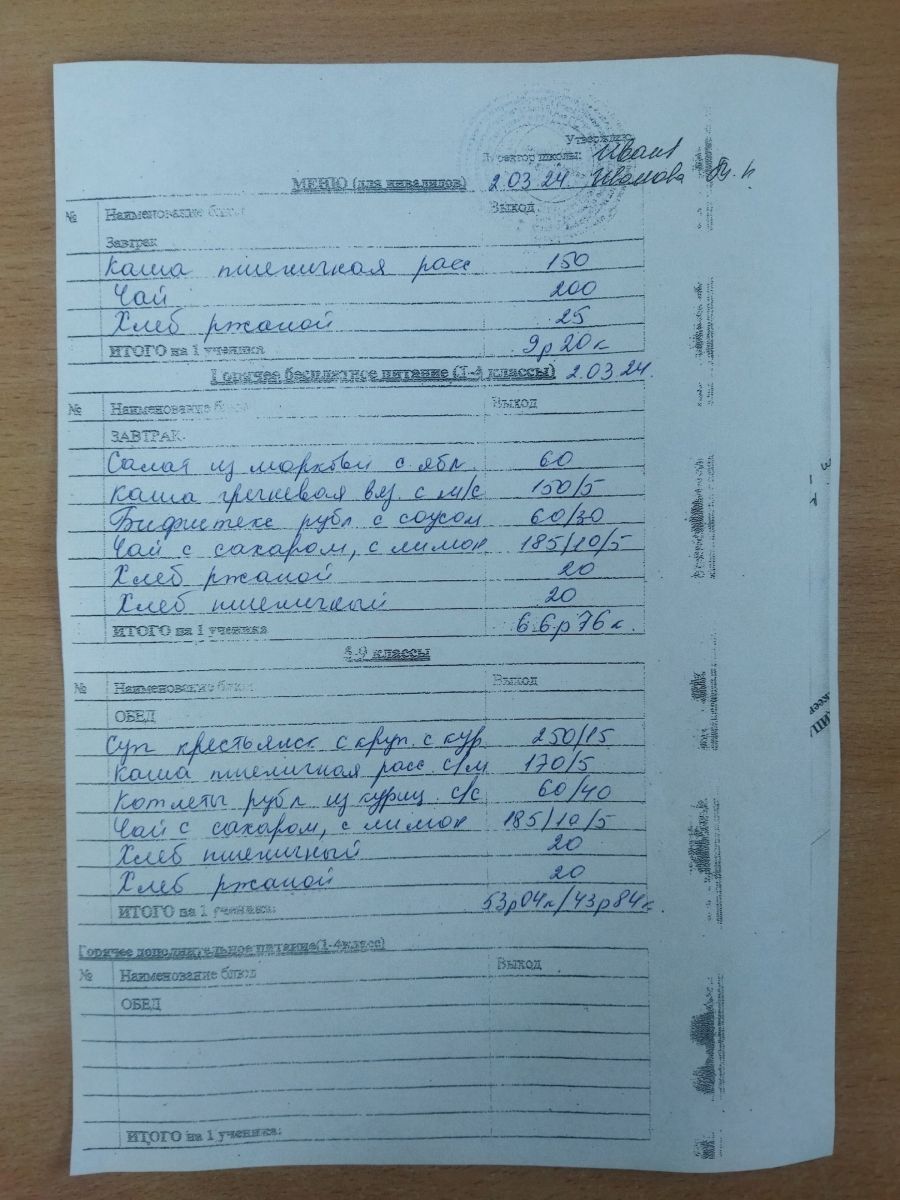 Утверждаю
Директор школы:
МЕНЮ (для инвалидов) 2.03 24. Иванова
№ Наименование блюд Выход
Завтрак
Каша пшеничная расс 150
Чай 200
Хлеб ржаной 25
ИТОГО на 1 ученика 9р 20к
Горячее бесплатное питание (1-4 классы) 2.03 24.
№ Наименование блюд Выход
ЗАВТРАК
Салат из моркови с ябл. 60
Каша гречневая вяз. с м/с 150/5
Бифштекс рубл с соусом 60/30
Чай с сахаром, с лимон 185/10/5
Хлеб ржаной 20
Хлеб пшеничный 20
ИТОГО на 1 ученика 66р76к.
5-9 классы
№ Наименование блюд Выход
ОБЕД
Суп крестьянск с круп. с кур. 250/15
Каша пшеничная расс с/м 170/5
Котлеты рубл из куриц с/с 60/40
Чай с сахаром, с лимон 185/10/5
Хлеб пшеничный 20
Хлеб ржаной 20
ИТОГО на 1 ученика: 53р04к/43р84к.
Горячее дополнительное питание(1-4класс)
№ Наименование блюд Выход
ОБЕД
ИТОГО на 1 ученика: